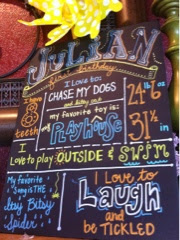 JULIAN
first birthday
I love to
CHASE MY DOGS
my favorite toy is:
my PLAY HOUSE
I have
8
teeth
24 lb 6 oz
31 1/2 in
I love to play OUTSIDE & SWIM
My favorite
Song is THE
Itsy Bitsy
Spider
I Love to
Laugh
and
be TICKLED